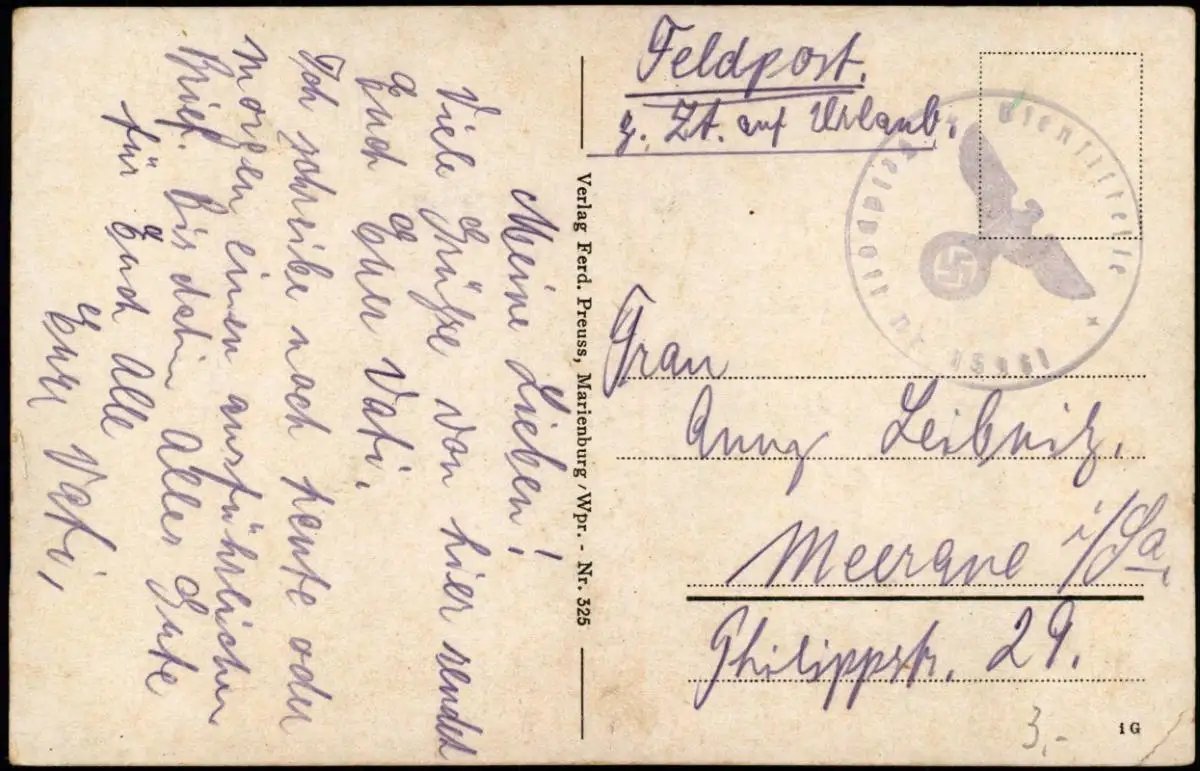 Meine Lieben!
Viele Grüße von hier sendet
Euch Euer Vati.
Ich schreibe noch heute oder
morgen einen ausführlichen
Brief. Bis dahin Alles Gute
für Euch Alle
Euer Vati,
Verlag Ferd. Preuss, Marienburg/Wpr. - Nr. 325
Feldpost.
z. Zt. auf Urlaub.
Dienststelle
Feldpost
Frau
Anny Leibnitz,
Meerane i/Sa,
Philippstr. 29.
3,-
1 G